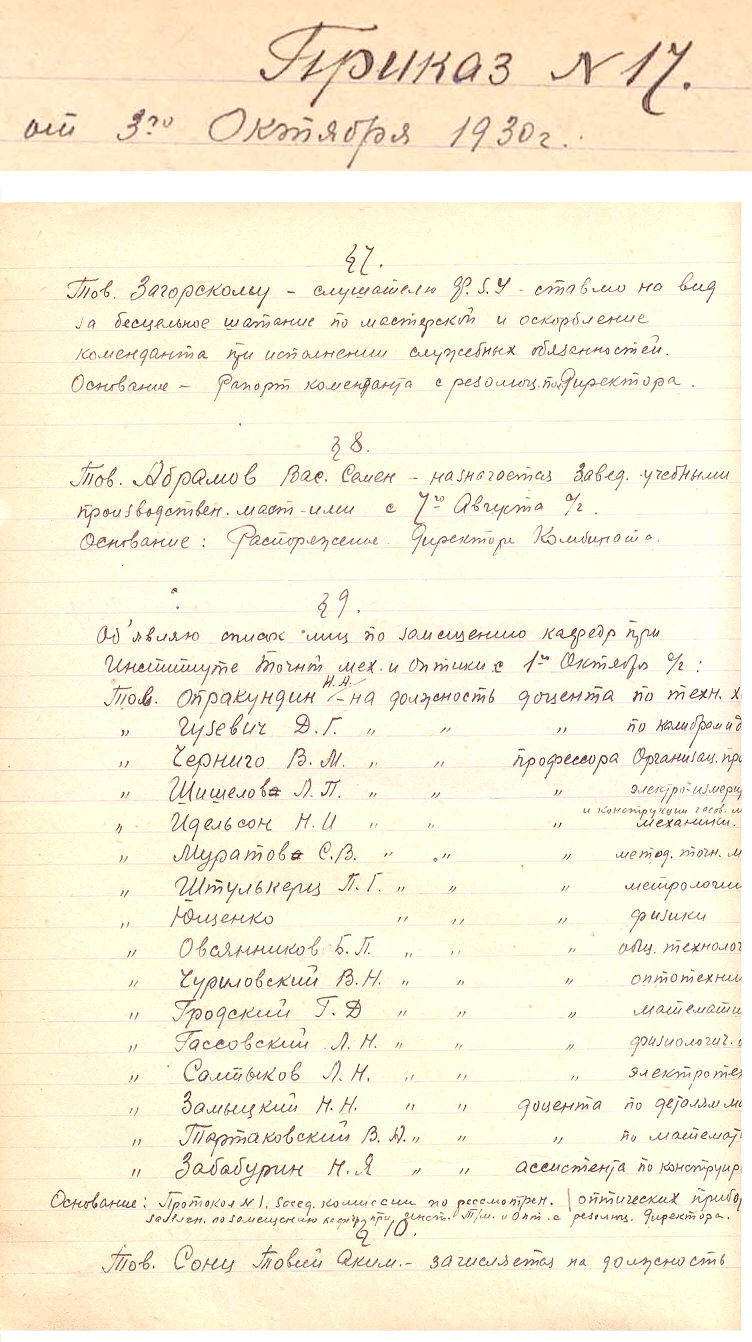 Приказ N 17.
от 3го Октября 1930г.
§ 7.
Тов. Загорскому – слушателю – ставлю на вид
за бесцельное шатание по мастерской и оскорбление
коменданта при исполнении служебных обязенностей.
Основание – Рапорт коменданта с резолюц. Директора.
§ 8.
Тов. Абрамов Вас. Семен – назначается Завед. учебными
производствен. маст-ими с 7го Августа с/г.
Основание: Распоряжение Директора Комбината.
§ 9.
Об'являю список лиц по замещению кафедр при
Институте точн. мех. и оптики с 1го Октября с/г:
Н.А.
Тов. Опракундин – на должность доцента по техн. х
„ Гузевич Д.Г. „ „ „ по калибрам и д
„ Черниго В.М. „ „ профессора Организац. пр
„ Шишелов Л.П. „ „ „ электро-измери
и конструкции часов. м
„ Идельсон Н.И „ „ „ механики.
„ Муратов С.В. „ „ „ метод. точн. м
„ Штулькерц П.Г. „ „ „ метрологии
„ Ющенко „ „ „ физики
„ Овсянников Б.П. „ „ „ общ. технолог
„ Чуриловский В.Н. „ „ „ оптотехни
„ Гродский Г.Д „ „ „ математи
„ Гассовский Л.Н. „ „ „ физиологич. о
„ Салтыков Л.Н. „ „ „ электроте
„ Замыцкий Н.Н. „ „ доцента по деталям ма
„ Тартаковский В.А. „ „ „ по математ
„ Забабурин Н.Я „ „ ассистента по конструир
Основание: Протокол N 1. засед. комиссии по рассмотрен. | оптических прибор
заявлен. по замещению кафедр при Инст. Т/м. и Опт. с резолюц. Директора.
§ 10.
Тов. Сонц Товий Аким. – зачисляется на должность